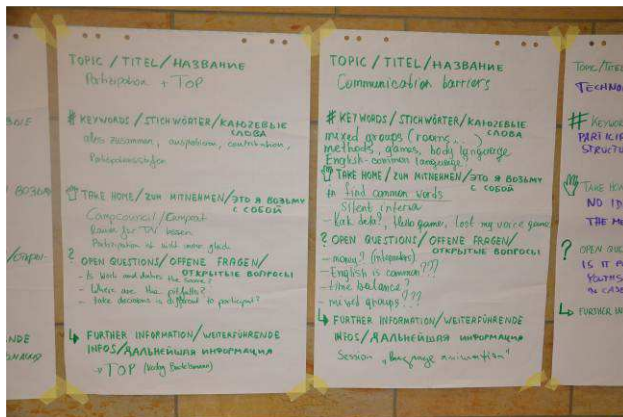 TOPIC / TITEL / НАЗВАНИЕ
Partizipation + TOP
# KEYWORDS / STICHWÖRTER / КЛЮЧЕВЫЕ СЛОВА
alles zusammen, ausprobieren, contribution,
? TAKE HOME / ZUM MITNEHMEN / ЭТО Я ВОЗЬМУ С СОБОЙ
Campcouncil / Camprat
Raum für TN lassen
? OPEN QUESTIONS / OFFENE FRAGEN / ОТКРЫТЫЕ ВОПРОСЫ
- Is work and duties the same?
- Where are the pitfalls?
- take decisions is different to participate?
FURTHER INFORMATION / WEITERFÜHRENDE
INFOS / ДАЛЬНЕЙШАЯ ИНФОРМАЦИЯ
→ TOP
TOPIC / TITEL / НАЗВАНИЕ
Communication barriers
# KEYWORDS / STICHWÖRTER / КЛЮЧЕВЫЕ СЛОВА
mixed groups (rooms, ..)
methods, games, body language
English-common language?
TAKE HOME / ZUM MITNEHMEN / ЭТО Я ВОЗЬМУ С СОБОЙ
to find common words
Silent interview
- Kak dela?, Hello game, lost my voice game
? OPEN QUESTIONS / OFFENE FRAGEN / ОТКРЫТЫЕ ВОПРОСЫ
- money? (interpreters)
- English is common???
- time balance?
- mixed groups???
FURTHER INFORMATION / WEITERFÜHRENDE
INFOS / ДАЛЬНЕЙШАЯ ИНФОРМАЦИЯ
Session "language animation"
TOPIC / TITEL
TECHNO
# KEYWOR
PARTICIP
STRUCTU
TAKE HOME
NO ID
THE M
? OPEN QUE
IS IT P
YOUTHS
FURTHER IN